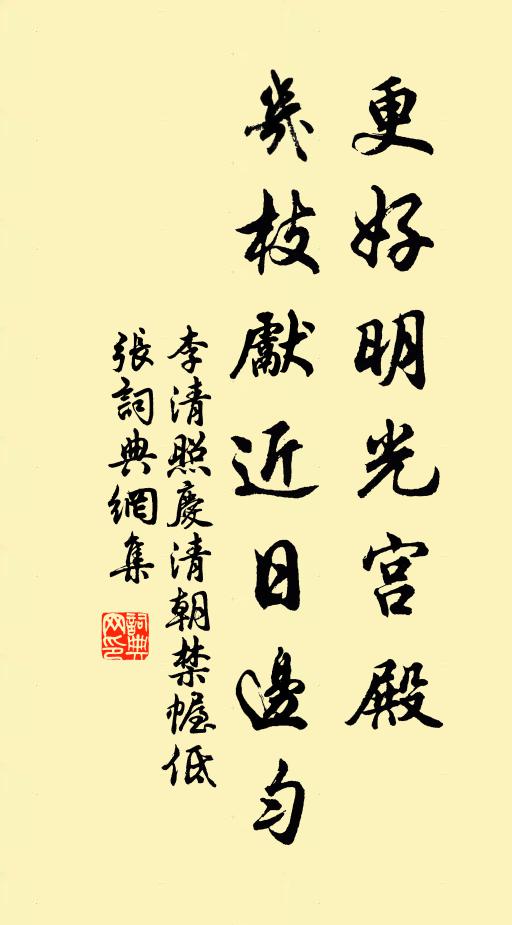 更好明光宫殿
幾枝獻近日邊勻
李清照慶清朝禁幄低
張詞典網集
詞典
网印